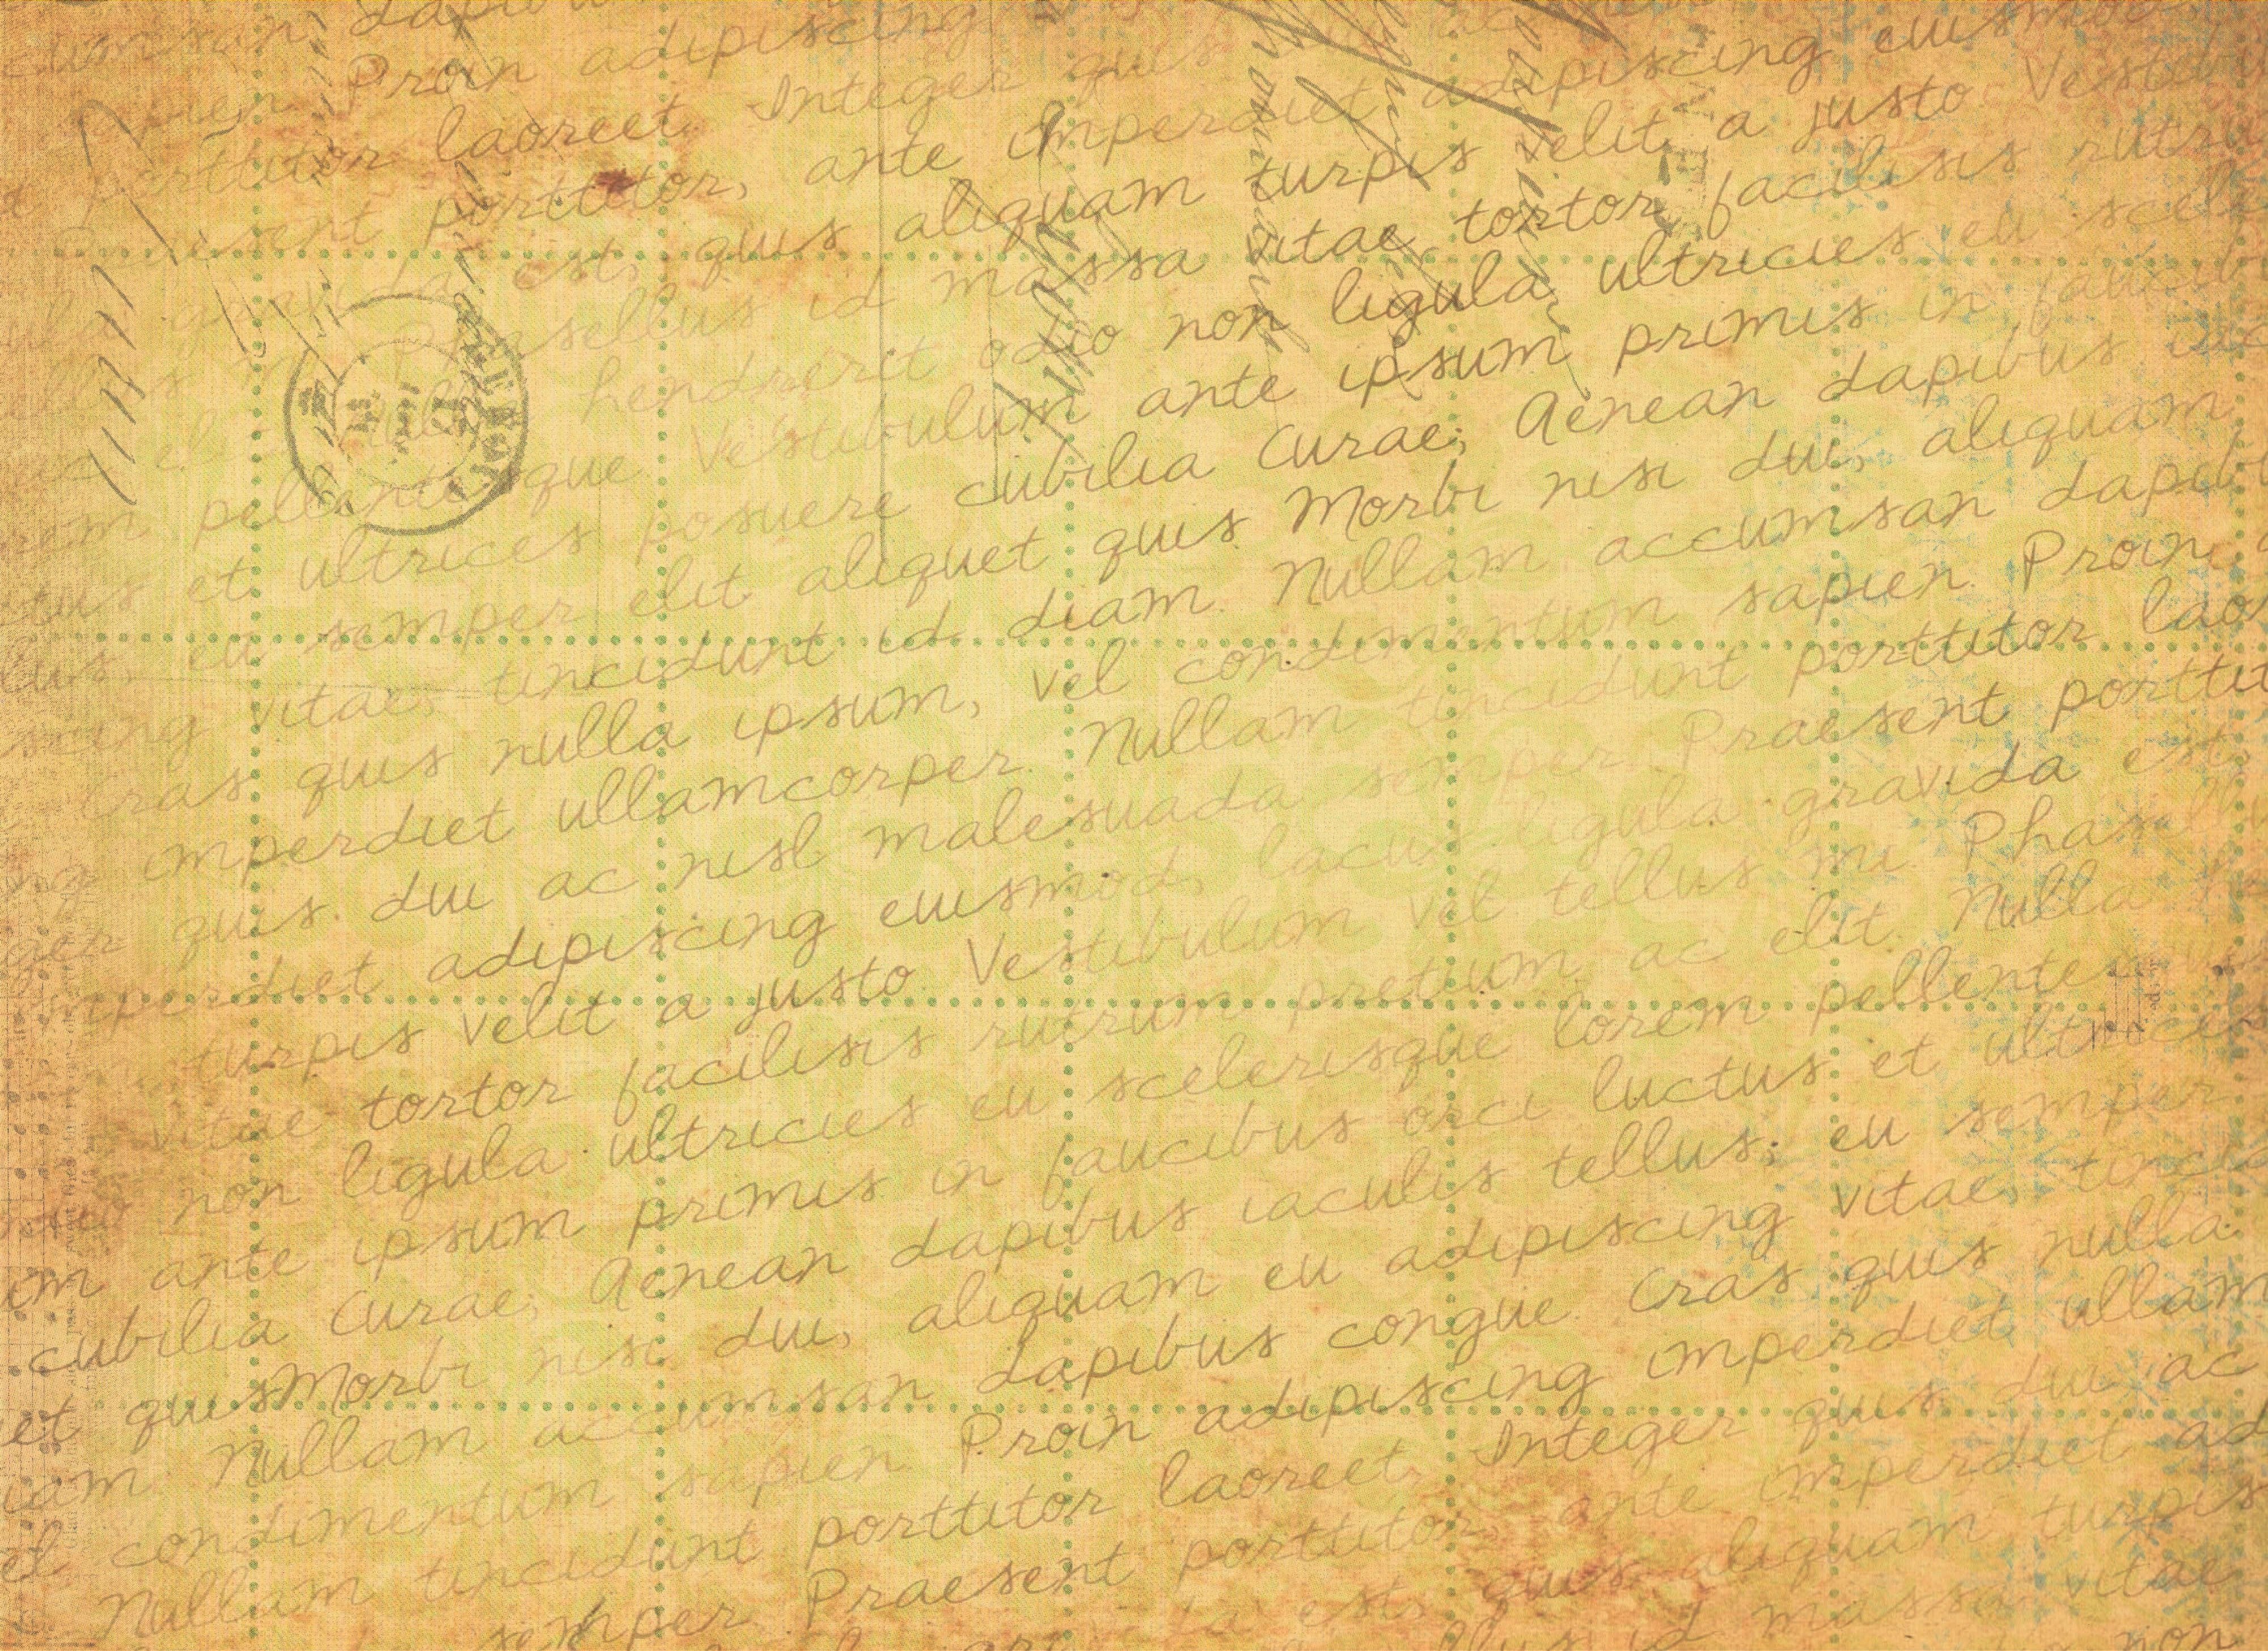 accumsan dapibus
sapien Proin adipiscing
porttitor laoreet. Integer quis
Praesent porttitor, ante imperdiet adipiscing euismod
gravida est, quis aliquam turpis velit a justo Vestibu
mi Phasellus id massa vitae tortor facilisis rutru
elit Nulla hendrerit odio non ligula ultricies eu scele
rem pellentesque Vestibulum ante ipsum primis in faucib
ctus et ultrices posuere cubilia Curae; Aenean dapibus iac
llus, eu semper elit aliquet quis Morbi nisi dui, aliquam
scing vitae, tincidunt id diam. Nullam accumsan dapib
Cras quis nulla ipsum, vel condimentum sapien. Proin
ng imperdiet ullamcorper. Nullam tincidunt porttitor laor
ger quis dui ac nisl malesuada semper. Praesent porttit
imperdiet adipiscing euismod, lacus ligula gravida est,
turpis velit a justo Vestibulum vel tellus mi. Phasellu
vitae tortor facilisis rutrum pretium ac elit. Nulla h
odio non ligula ultricies eu scelerisque lorem pellentesque
um ante ipsum primis in faucibus orci luctus et ultrices
cubilia Curae; Aenean dapibus iaculis tellus, eu semper
et quis Morbi nisi dui, aliquam eu adipiscing vitae, tincid
iam Nullam accumsan dapibus congue. Cras quis nulla
el condimentum sapien Proin adipiscing imperdiet ullam
Nullam tincidunt porttitor laoreet. Integer quis dui ac
semper Praesent porttitor, ante imperdiet ad
est, quis aliquam turpis
id massa vitae
non